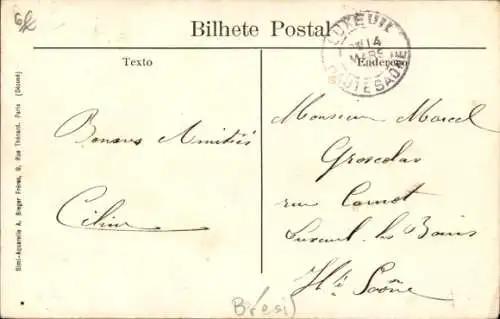 6f
Bilhete Postal
LUXEUIL
14
MARS
HAUTE SAÔNE
Texto
Endereço
Bonnes Amitiés
Monsieur Marcel
Grosedar
rue Carnot
Luxeuil les Bains
Hte Saône
Brésil
Simi-Aquarelle A. Breger Frères, 9, Rue Thénard, Paris (Déposé)